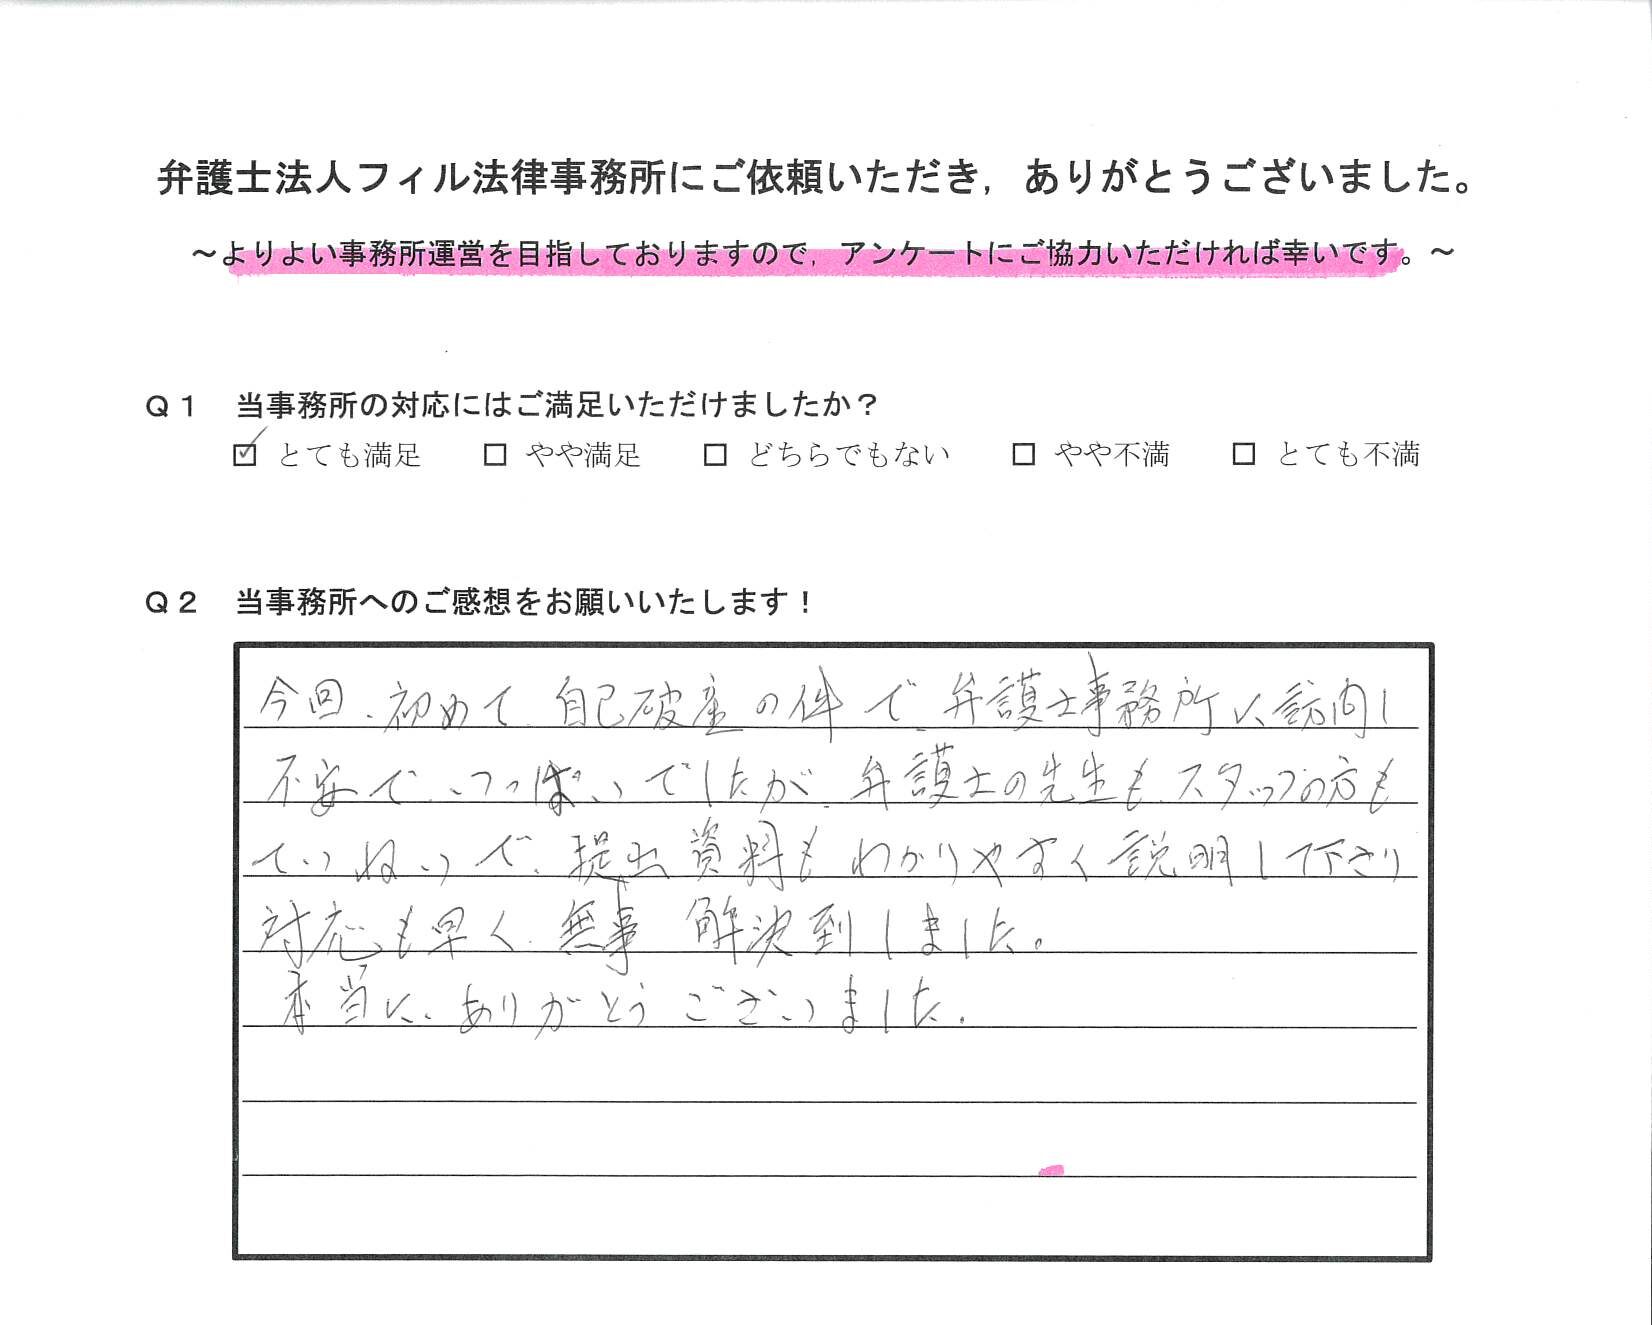 弁護士法人フィル法律事務所にご依頼いただき，ありがとうございました。
～よりよい事務所運営を目指しておりますので，アンケートにご協力いただければ幸いです。～
Ｑ１ 当事務所の対応にはご満足いただけましたか？
☑ とても満足 □ やや満足 □ どちらでもない □ やや不満 □ とても不満
Ｑ２ 当事務所へのご感想をお願いいたします！
今回、初めて、自己破産の件で、弁護士事務所に訪問し
不安で、いっぱいでしたが、弁護士の先生も、スタッフの方も
ていねいで、提出資料もわかりやすく説明して下さり
対応も早く、無事 解決到しました。
本当に、ありがとうございました。